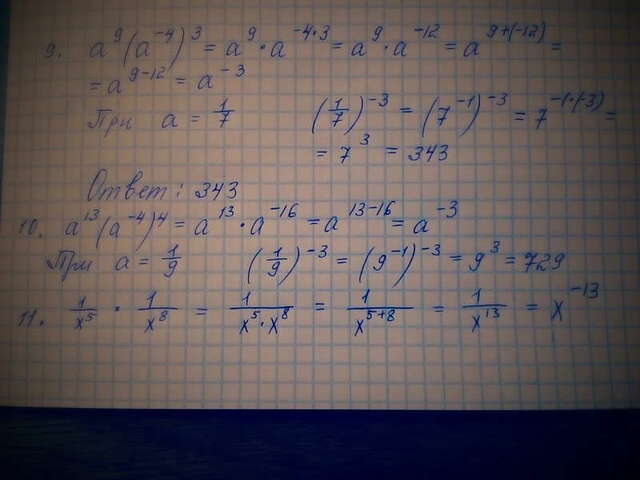 9. a⁹(a⁻⁴)³ = a⁹ · a⁻⁴·³ = a⁹ · a⁻¹² = a⁹⁺⁽⁻¹²⁾ =
= a⁹⁻¹² = a⁻³
При a = 1/7 (1/7)⁻³ = (7⁻¹)⁻³ = 7⁻¹·⁽⁻³⁾ =
= 7³ = 343
Ответ: 343
10. a¹³(a⁻⁴)4 = a¹³ · a⁻¹⁶ = a¹³⁻¹⁶ = a⁻³
При a = 1/9 (1/9)⁻³ = (9⁻¹)⁻³ = 9³ = 729
11. 1/x⁵ · 1/x⁸ = 1/(x⁵·x⁸) = 1/x⁵⁺⁸ = 1/x¹³ = x⁻¹³